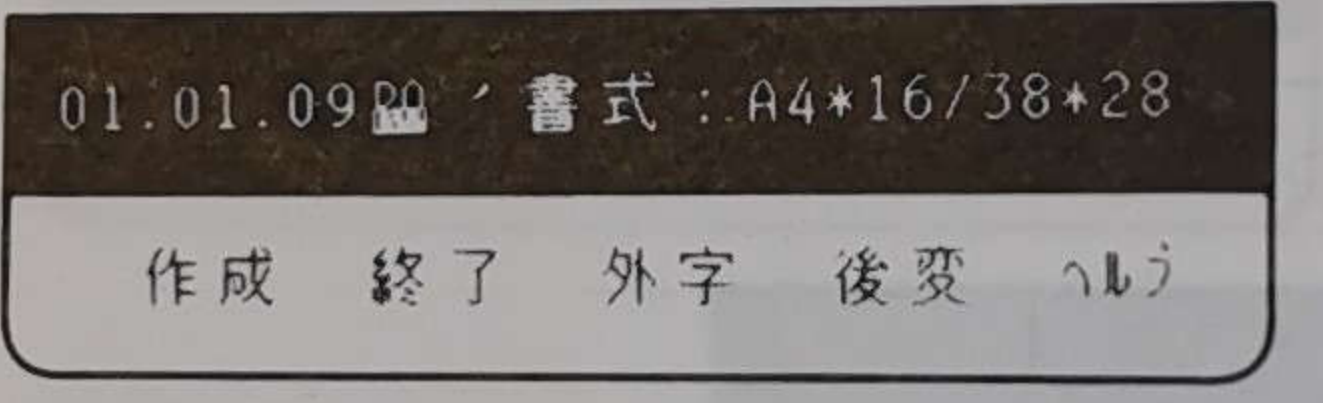 01.01.09 ´書式:A4*16/38*28
作成 終了 外字 後変 ヘルプ